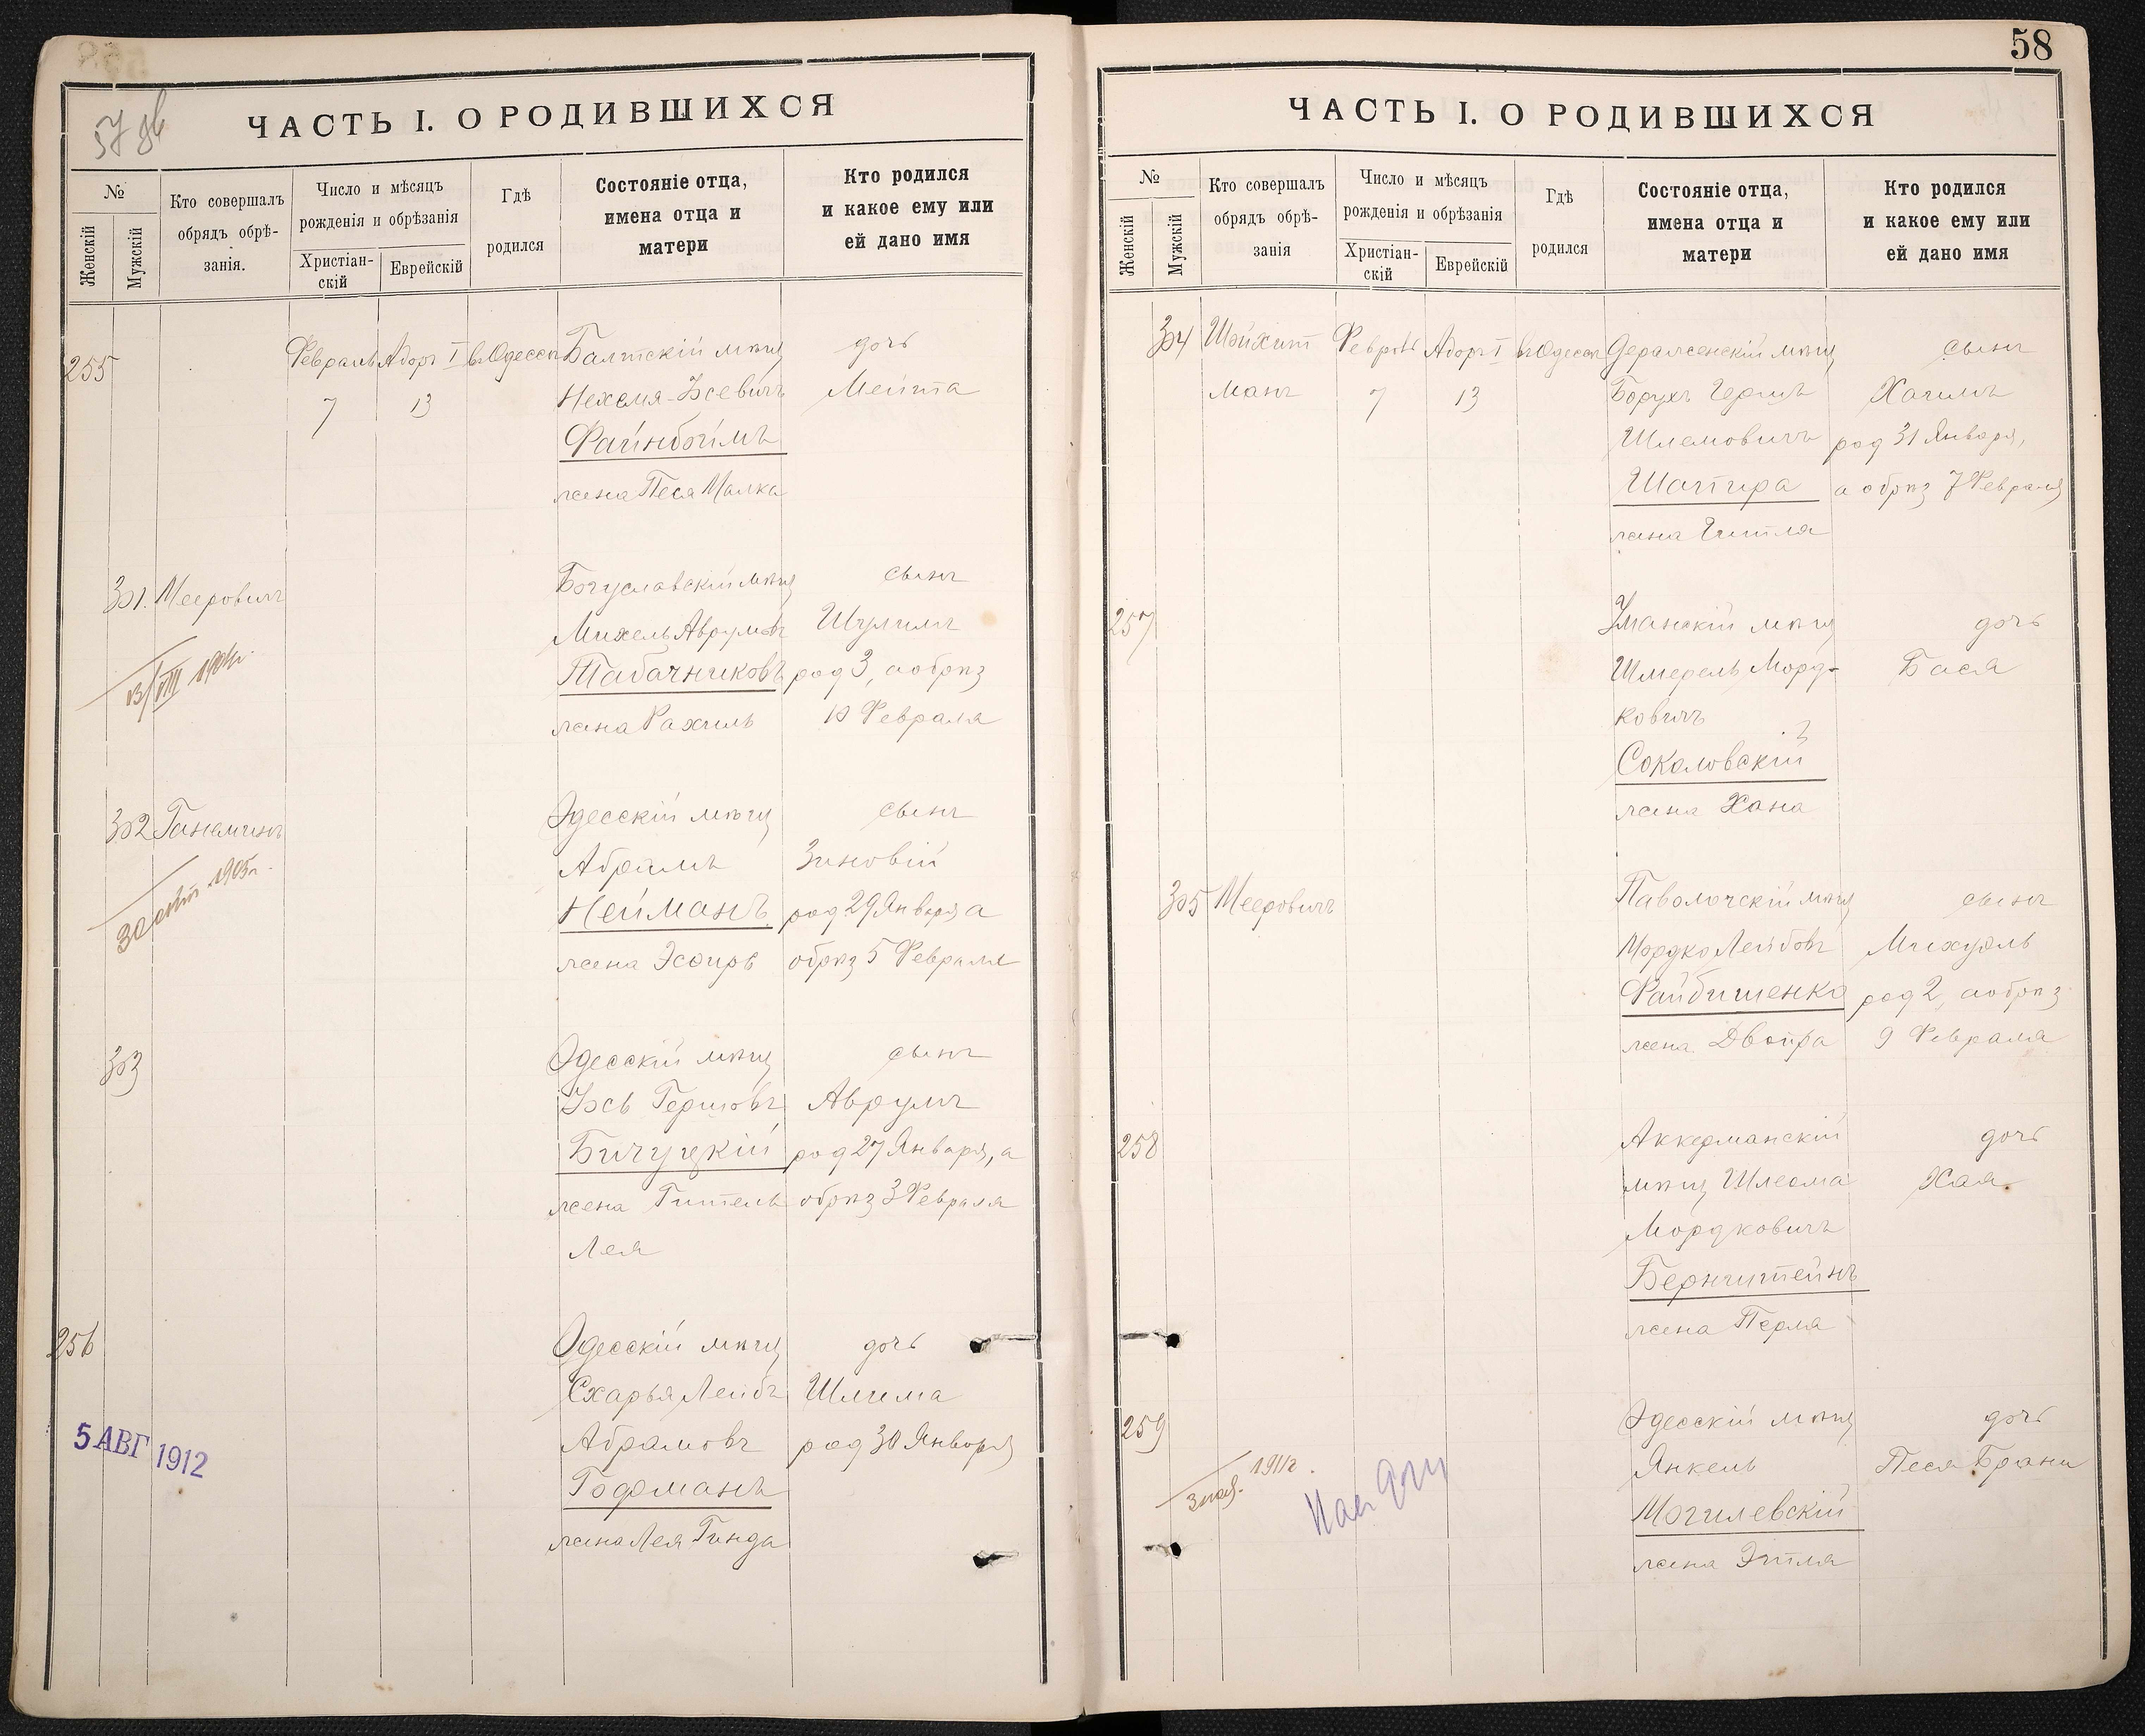 57 об
ЧАСТЬ I. О РОДИВШИХСЯ
№
Женскій
Мужскій
Кто совершалъ
обрядъ обрѣ-
занія.
Число и мѣсяцъ
рожденія и обрѣзанія
Христіан-
скій
Еврейскій
Гдѣ
родился
Состояніе отца,
имена отца и
матери
Кто родился
и какое ему или
ей дано имя
255
Февраль Адоръ I въ Одессѣ Балтскій мѣщ дочь
7 13 Нехемя-Іосевичъ Мейта
Файнбоймъ
жена Песя Малка
301. Мееровичъ Богуславскій мѣщ сынъ
Михель Аврумовъ Шулимъ
Табачниковъ род 3, а обрѣз
жена Рахиль 10 Февраля
13/VIII 1904г.
302 Одесскій мѣщ сынъ
Абрамъ Зиновій
Нейманъ род 29 Января а
жена Эсѳирь обрѣз 5 Февраля
1905г.
303 Одесскій мѣщ сынъ
Іось Гершовъ Аврумъ
Бичуцкій род 27 Января, а
жена Гитель обрѣз 3 Февраля
Лея
256 Одесскій мѣщ дочь
Схарья Лейбъ Шлима
Абрамовъ род 30 Января
Гофманъ
жена Лея Гинда
5 АВГ 1912
58
ЧАСТЬ I. О РОДИВШИХСЯ
№
Женскій
Мужскій
Кто совершалъ
обрядъ обрѣ-
занія
Число и мѣсяцъ
рожденія и обрѣзанія
Христіан-
скій
Еврейскій
Гдѣ
родился
Состояніе отца,
имена отца и
матери
Кто родился
и какое ему или
ей дано имя
304 Шойхит Февраль Адоръ I въ Одессѣ Деражненскій мѣщ сынъ
манъ 7 13 Борухъ Гершъ Хаимъ
Шлемовичъ род 31 Января,
Шапира а обрѣз 7 Февраля
жена Гитля
257 Уманскій мѣщ дочь
Шмерель Морд- Бася
ковичъ
Соколовскій
жена Хана
305 Мееровичъ Паволочскій мѣщ сынъ
Мордко Лейбовъ Михуэль
Файбишенко род 2, а обрѣз
жена Двойра 9 Февраля
258 Аккерманскій дочь
мѣщ Шлеома Хая
Мордковичъ
Бернштейнъ
жена Перля
259 Одесскій мѣщ дочь
Янкель Песя Брана
Могилевскій
жена Этля
1911г.